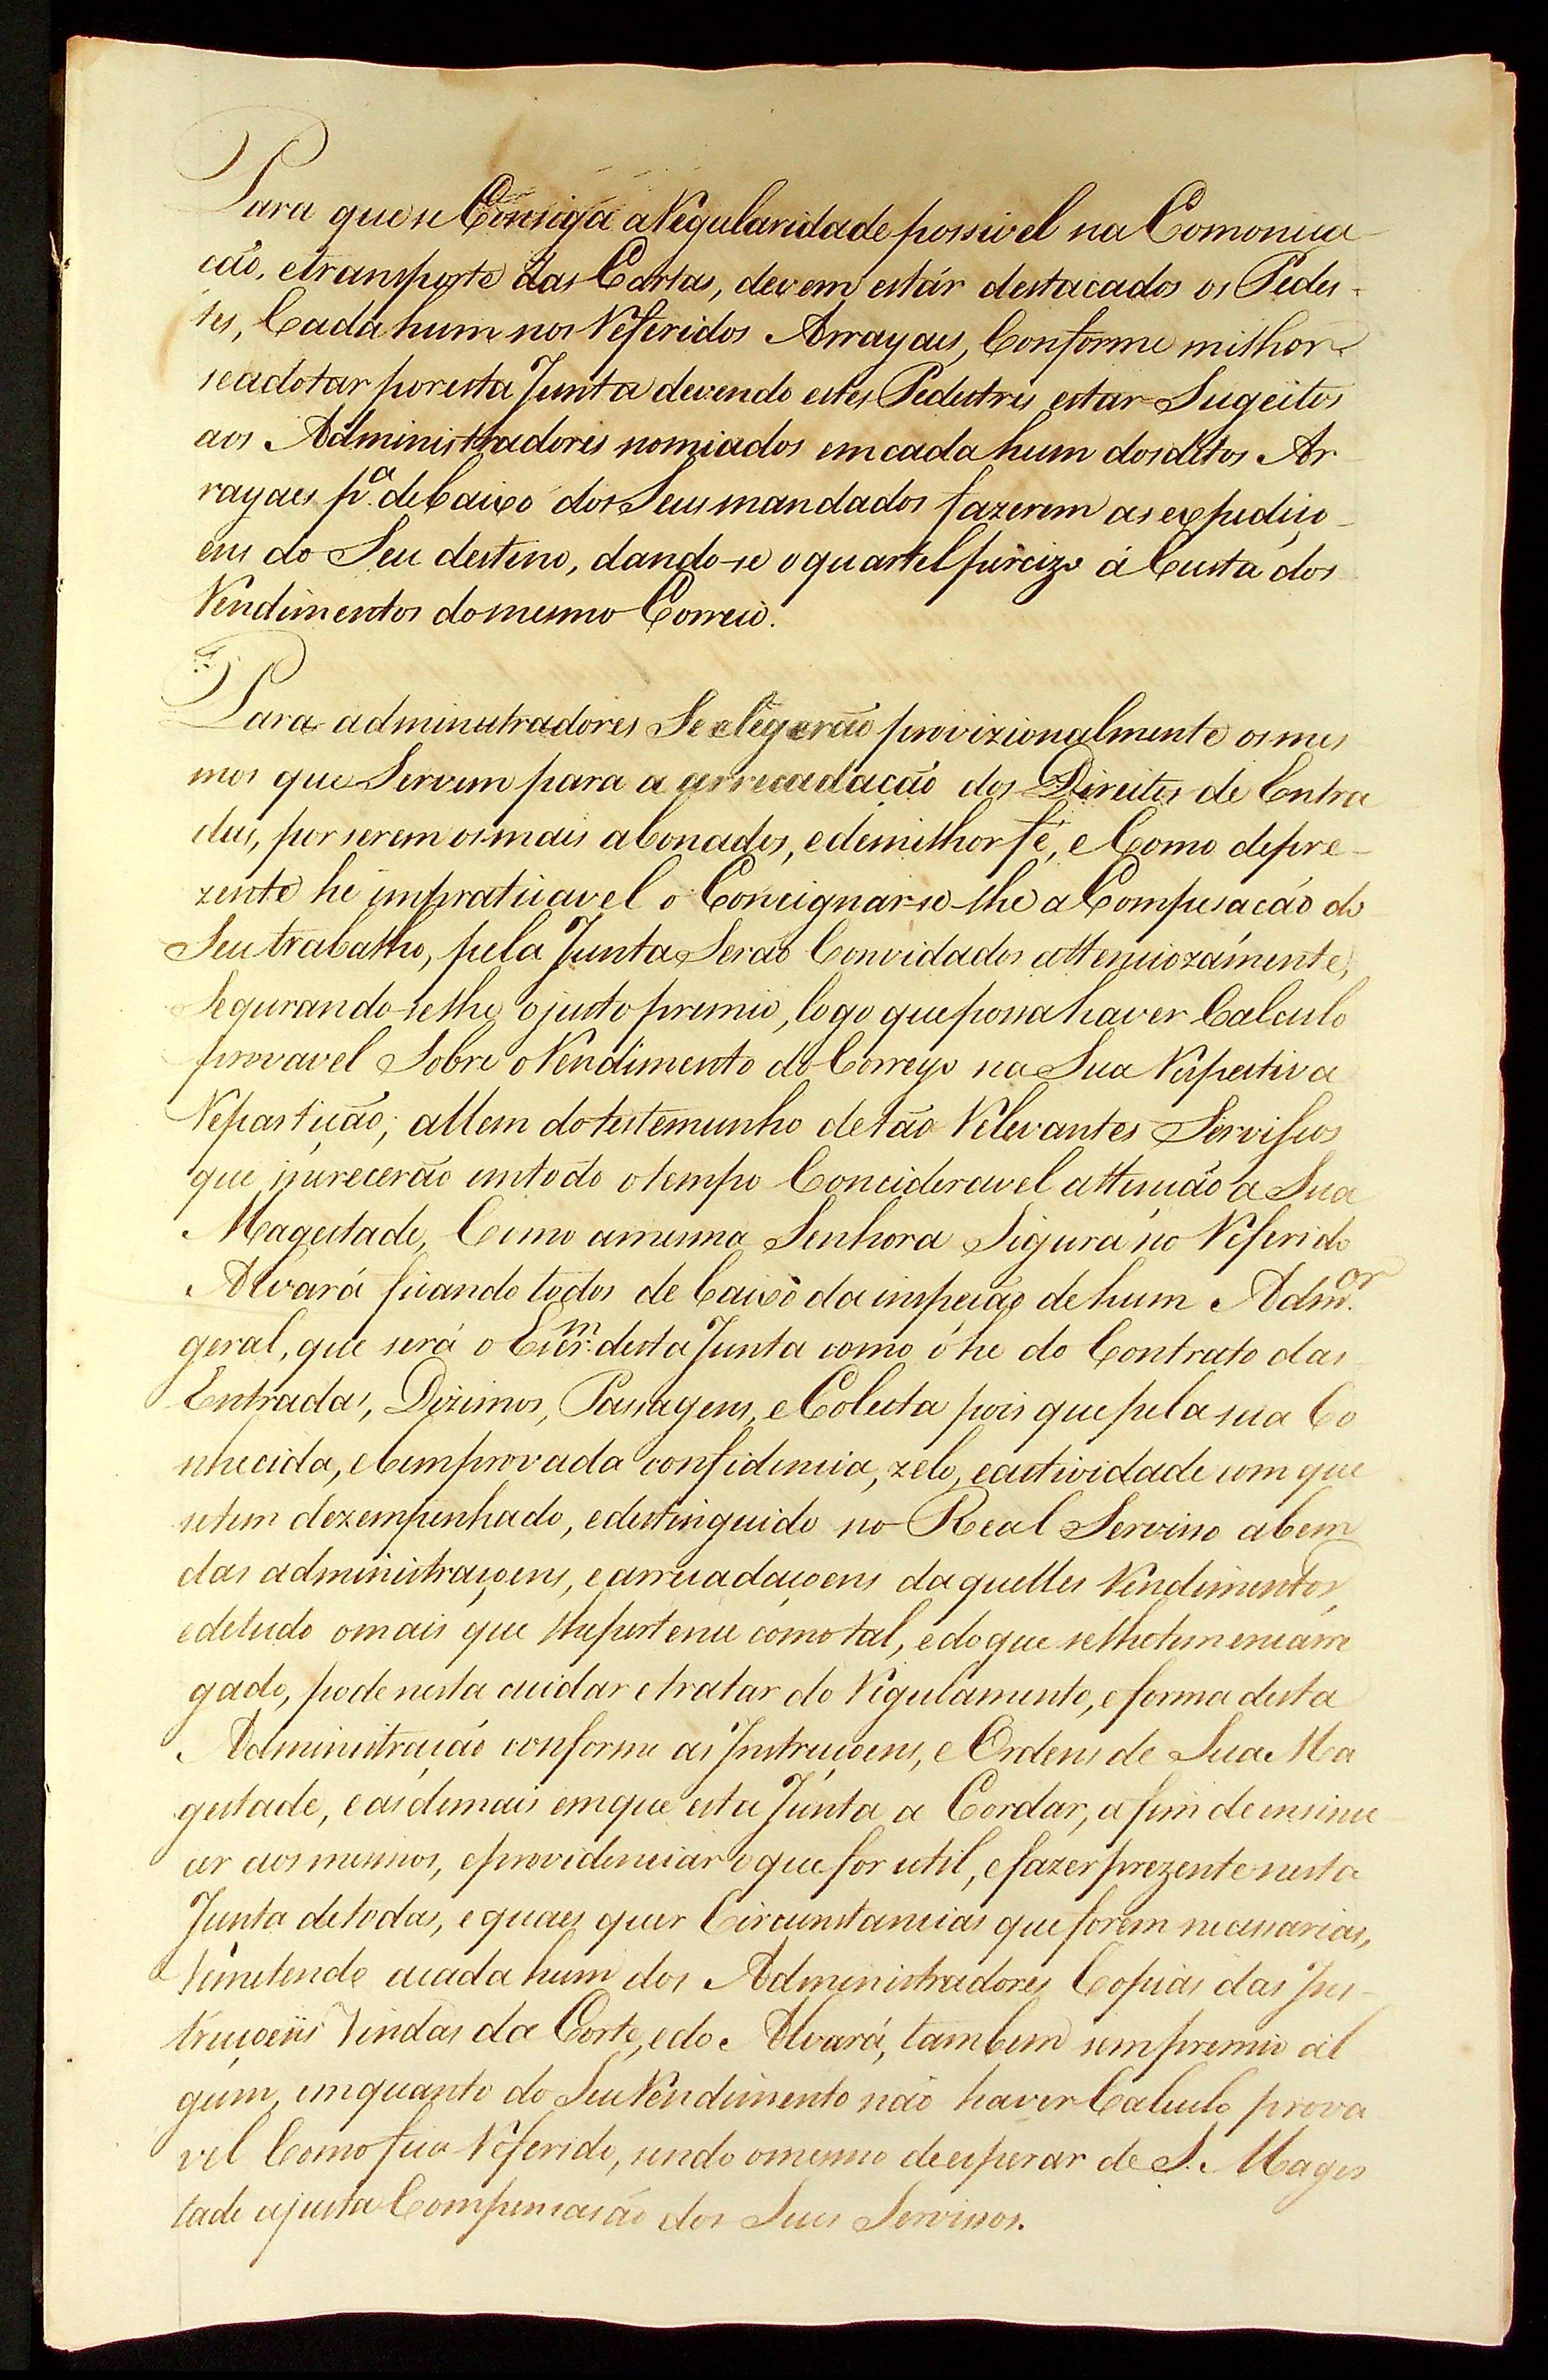 Para que se Consiga a Regularidade possivel na Comonica-
cão, e transporte das Cartas, devem estár destacados os Pedes-
tes, Cada hum nos Referidos Arrayaes, Conforme milhor
se adotar por esta Junta devendo estes Pedestres estar Sugeitos
aos Administradores nomiados em cada hum dos ditos Ar-
rayaes pª. debaixo dos Seus mandados fazerem as expediço-
ens do Seu destino, dando-se o quartel precizo á Custa dos
Rendimentos do mesmo Correio.
Para administradores Se elegerão provizionalmente os mes-
mos que Servem para a arrecadacão dos Direitos de Entra
das, por serem os mais abonados, e de milhor fé, e Como de pre-
zente he impraticavel o Concignar-se-lhe a Compesacão do
Seu trabalho, pela Junta Serão Convidados attenciozamente,
Segurando-selhe o justo premio, logo que possa haver Calculo
provavel Sobre o Rendimento do Correyo na Sua Respectiva
Repartição; allem do testemunho de tão Relevantes Servissos
que merecerão em todo o tempo Concideravel attenção a Sua
Magestade, Como a mesma Senhora Sigura no Referido
Alvará ficando todos debaixo da inspeção de hum Admor.
geral, que será o Escrm. desta Junta como o he do Contrato das
Entradas, Dizimos, Passagens, e Colecta pois que pela sua Co
nhecida, e bem provada confidencia, zelo, e actividade com que
se tem dezempenhado, e destinguido no Real Serviso a bem
das administraçoens, e arrecadaçoens daquelles Rendimentos,
e de tudo o mais que lhe pertence como tal, e do que se lhe tem encarre
gado, pode nesta cuidar e tratar do Regulamento, e forma desta
Administração conforme as Instruçoens, e Ordens de Sua Ma
gestade, e as demais em que esta Junta a Cordar, a fim de ensinu
ar aos mesmos, e providenciar o que for util, e fazer prezente nesta
Junta de todas, e quaes quer Circunstancias que forem necessarias,
Remetendo a cada hum dos Administradores Copias das Ins-
truçoens Vindas da Corte, e do Alvará, tambem sem premio al
gum, emquanto do Seu Rendimento não haver Calculo prova
vel Como fica Referido, sendo o mesmo de esperar de S. Mages
tade a justa Compensasão dos Seus Servissos.